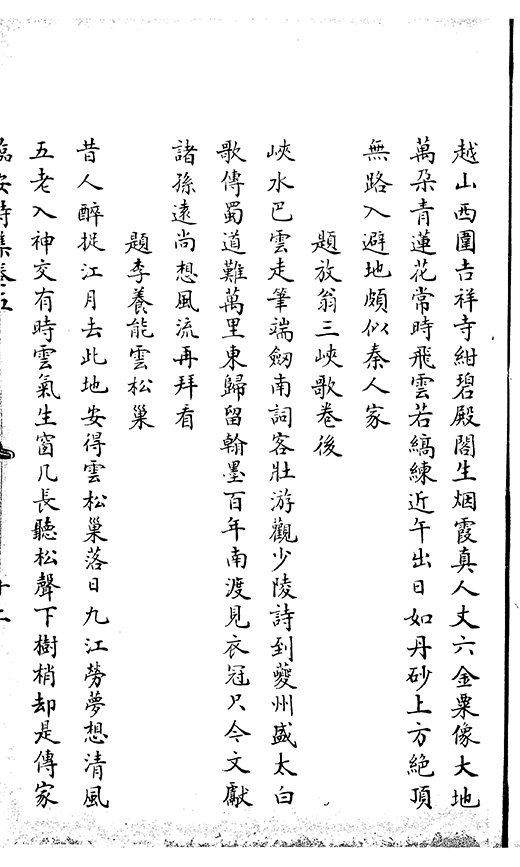 越山西圍吉祥寺紺碧殿閣生烟霞真人丈六金粟像大地
萬朵青蓮花常時飛雲若縞練近午出日如丹砂上方絶頂
無路入避地頗似秦人家
題放翁三峽歌卷後
峽水巴雲走筆端劒南詞客壯游觀少陵詩到夔州盛太白
歌傳蜀道難萬里東歸留翰墨百年南渡見衣冠只今文獻
諸孫遠尚想風流再拜看
題李養能雲松巢
昔人醉捉江月去此地安得雲松巢落日九江勞夢想清風
五老入神交有時雲氣生窗几長聽松聲下樹梢却是傳家